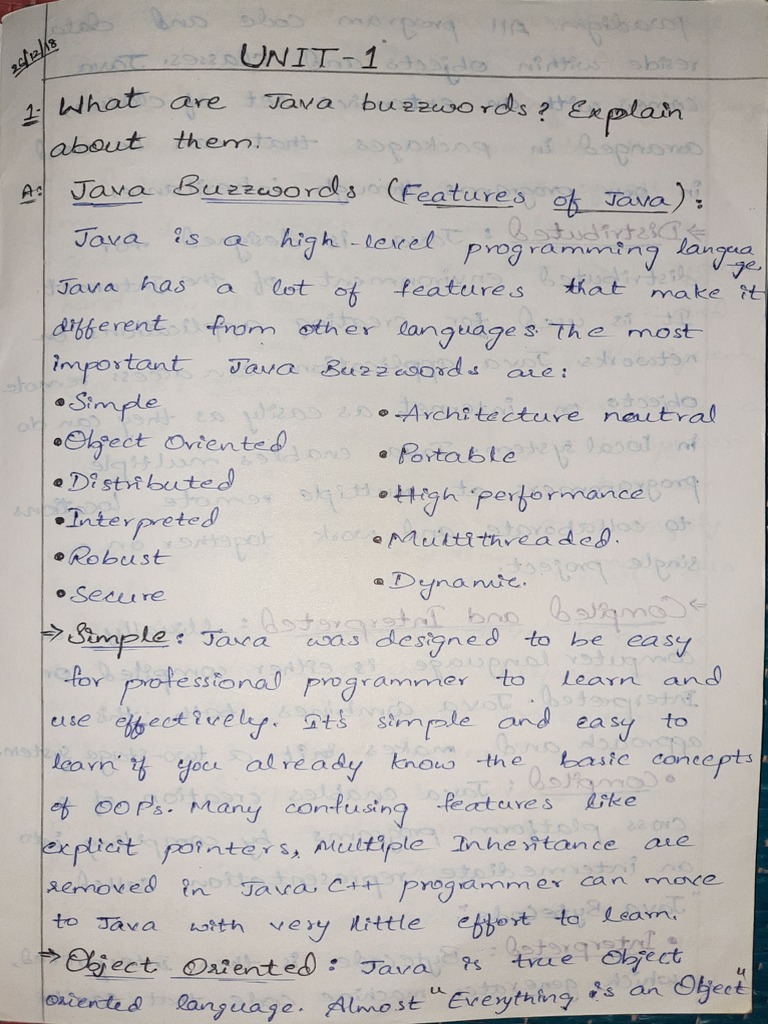 26/12/18
UNIT-1
1. What are Java buzzwords? Explain
about them.
A: Java Buzzwords (Features of Java):
Java is a high-level programming langua
-ge.
Java has a lot of features that make it
different from other languages. The most
important Java Buzzwords are:
• Simple
• Object Oriented
• Distributed
• Interpreted
• Robust
• Secure
• Architecture neutral
• Portable
• High performance
• Multithreaded.
• Dynamic.
⇒ Simple: Java was designed to be easy
for professional programmer to learn and
use effectively. It's simple and easy to
learn if you already know the basic concepts
of OOP's. Many confusing features like
explicit pointers, Multiple Inheritance are
removed in Java. C++ programmer can move
to Java with very little effort to learn.
⇒ Object Oriented: Java is true Object
oriented language. Almost "Everything is an Object"